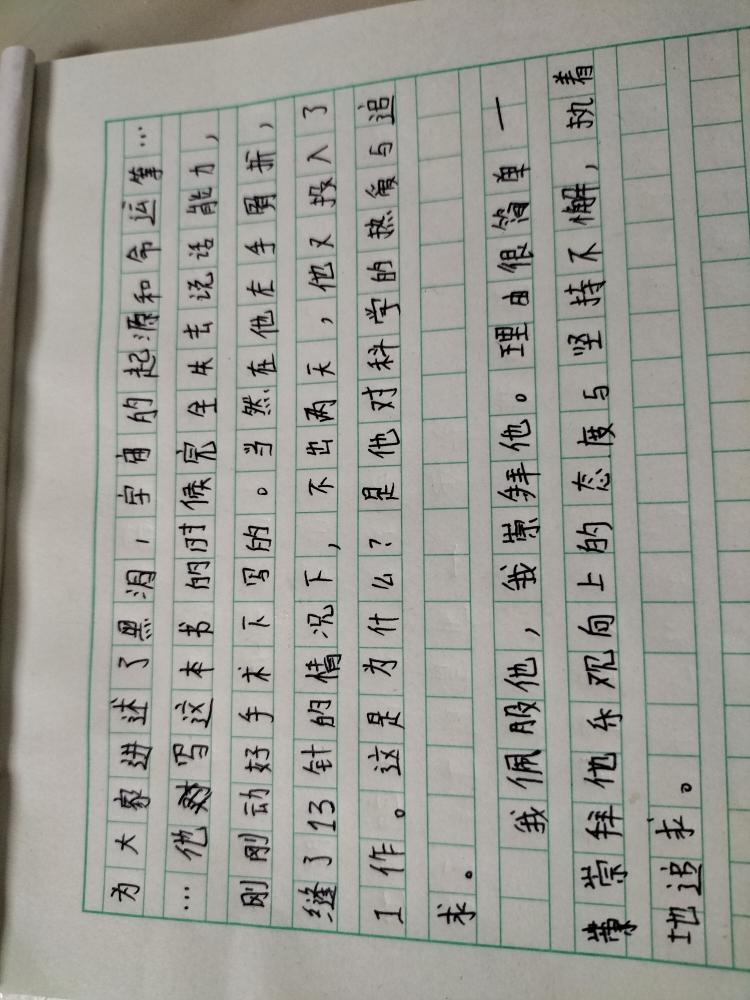 为大家讲述了黑洞，宇宙的起源和命运等…
…他写这本书的时候完全失去说话能力，
刚刚动好手术下写的。当然在他左手骨折，
缝了13针的情况下，不出两天，他又投入了
工作。这是为什么？是他对科学的热爱与追
求。
我佩服他，我崇拜他。理由很简单一
崇拜他乐观向上的态度与坚持不懈，执着
地追求。